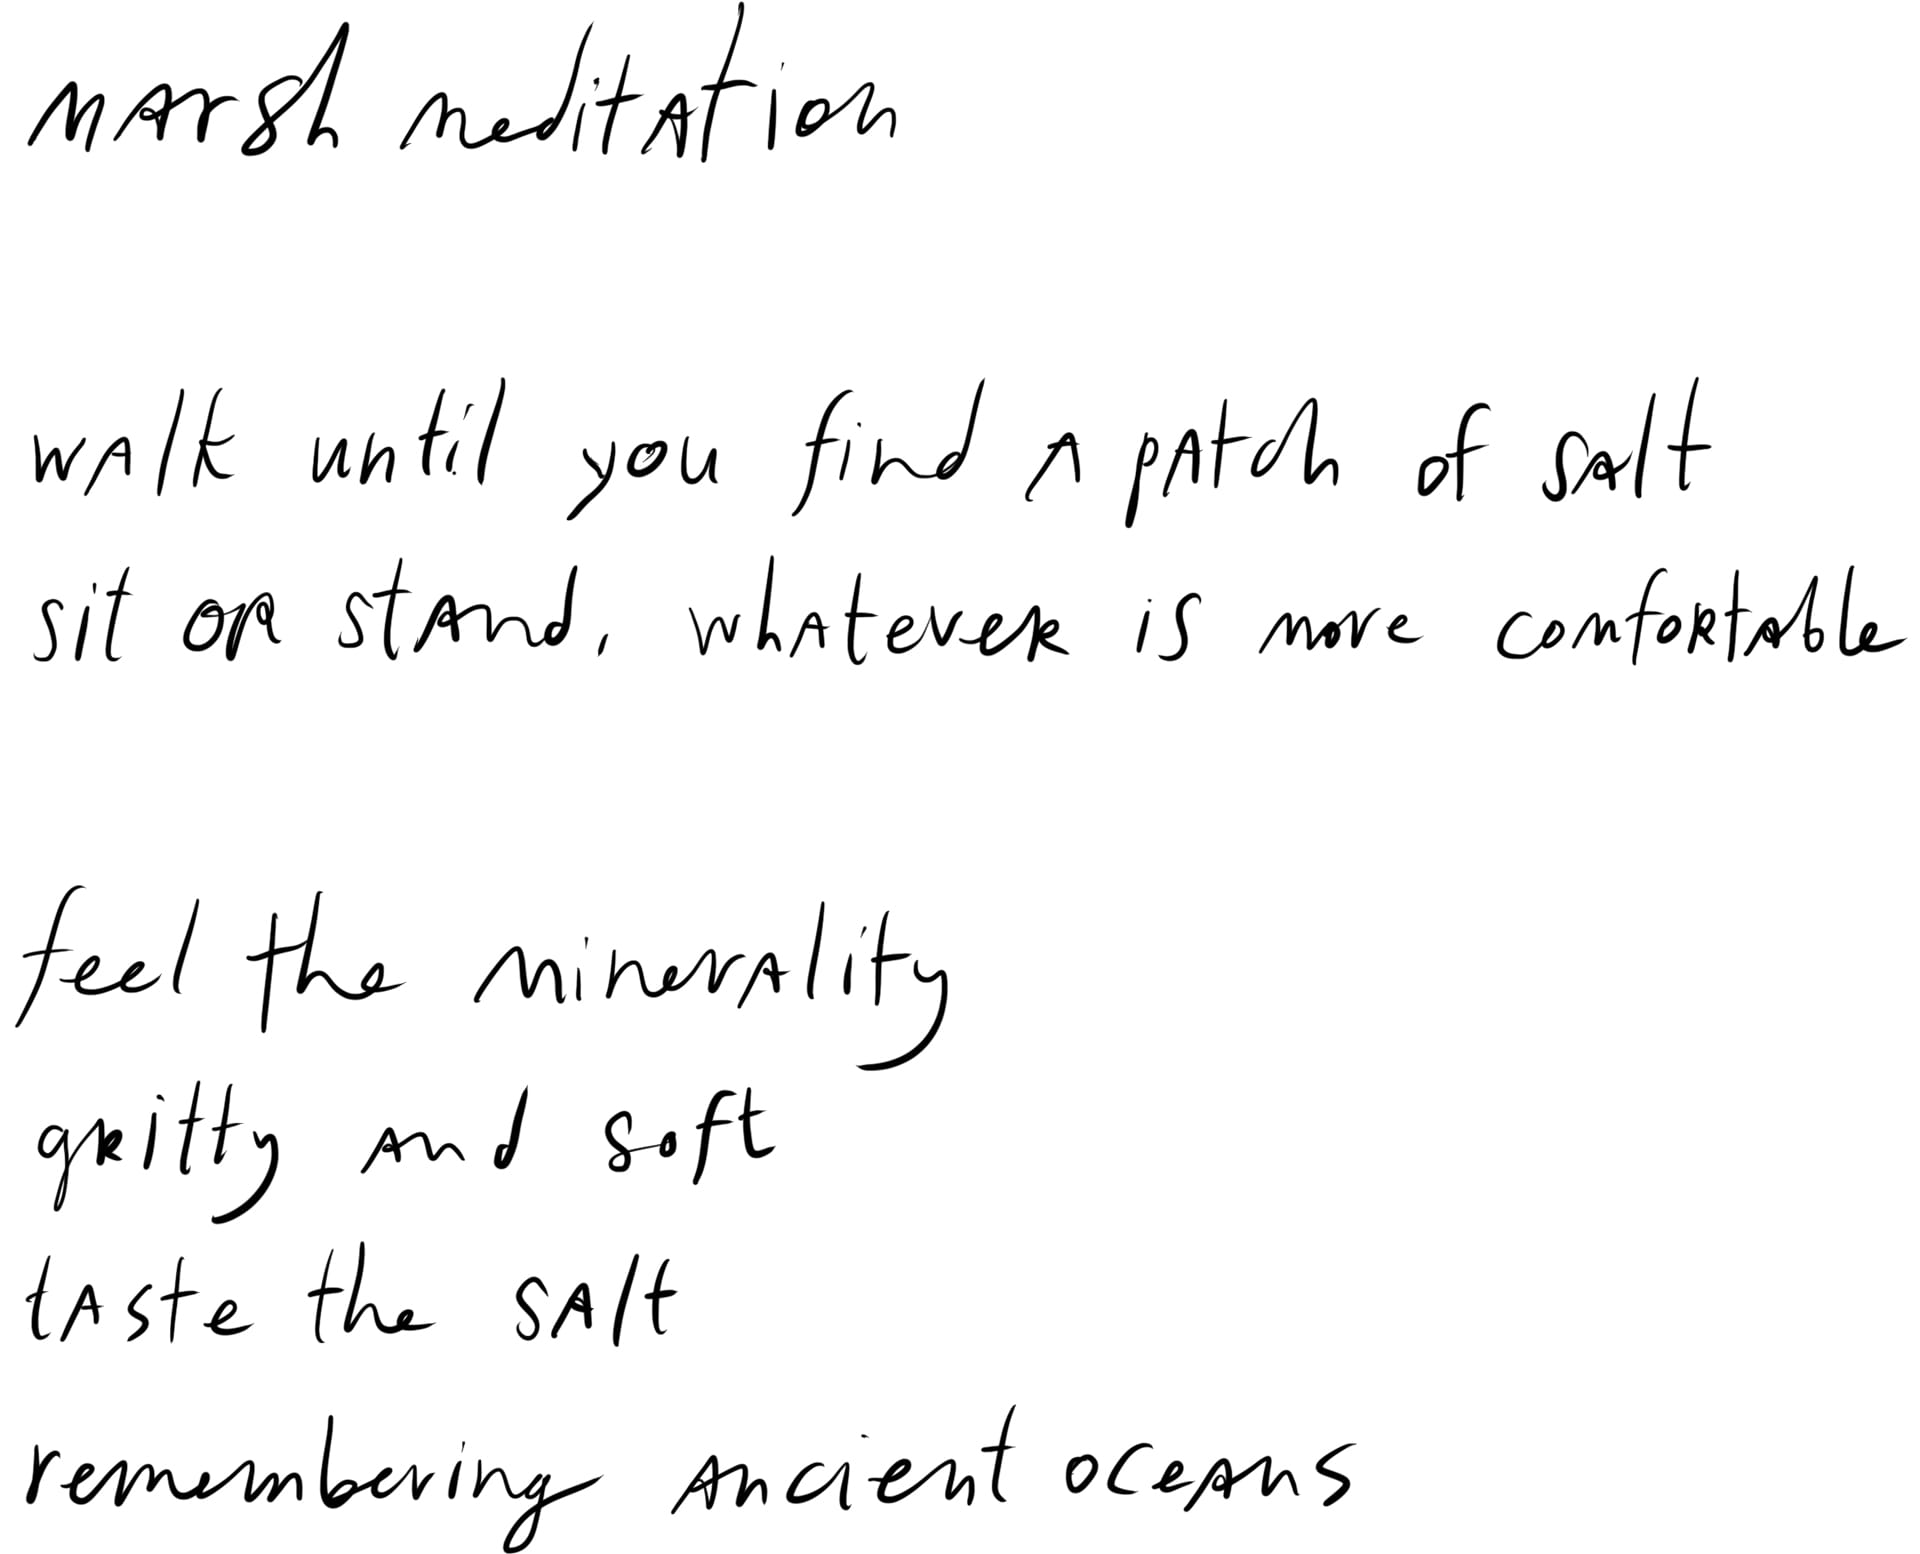 marsh meditation
walk until you find a patch of salt
sit or stand, whatever is more comfortable
feel the minerality
gritty and soft
taste the salt
remembering ancient oceans